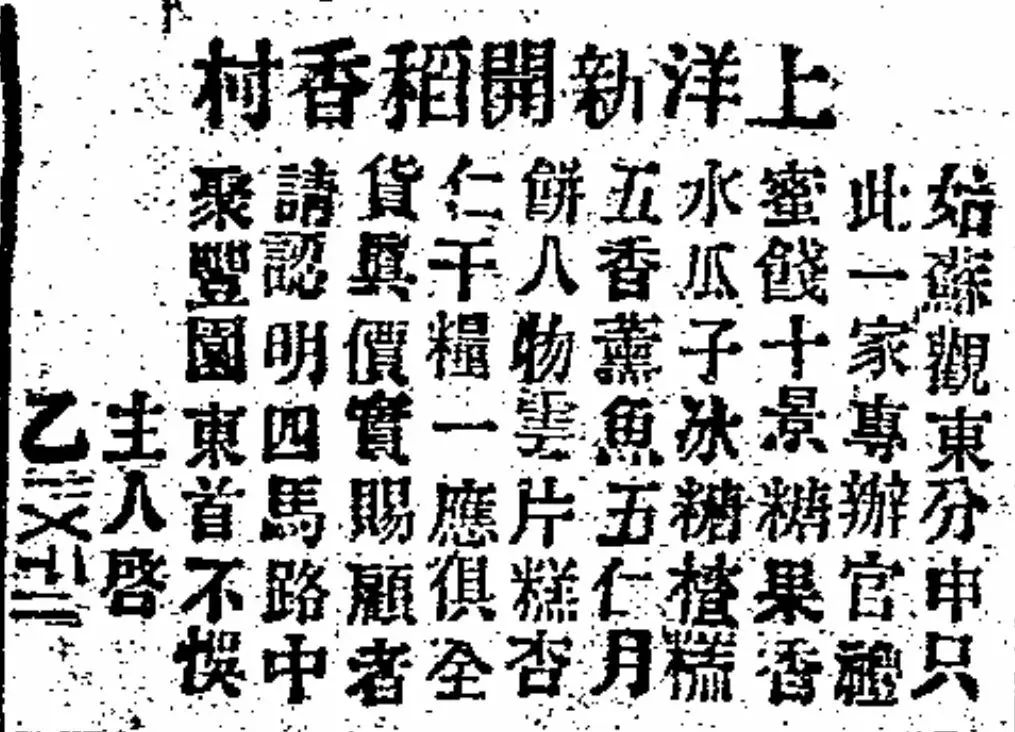 上洋新開稻香村
姑蘇觀東分申只
此一家專辦官禮
蜜餞十景糖果香
水瓜子冰糖楂糕
五香薰魚五仁月
餅八物雲片糕杏
仁干糧一應俱全
貨眞價實賜顧者
請認明四馬路中
聚豐園東首不悞
主人啓
乙